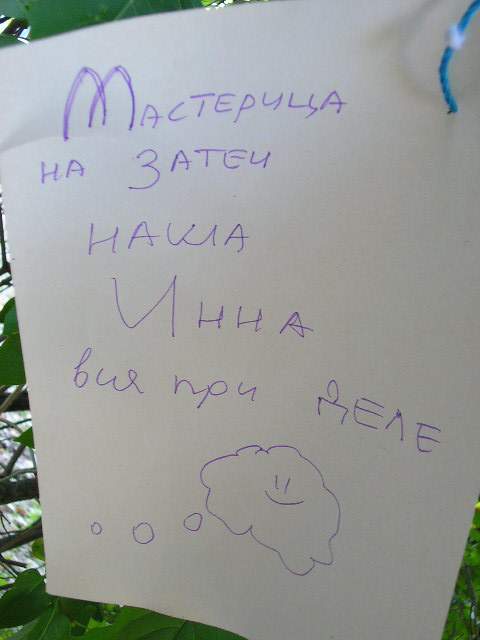 Мастерица
на Затеи
наша
Инна
вся при деле